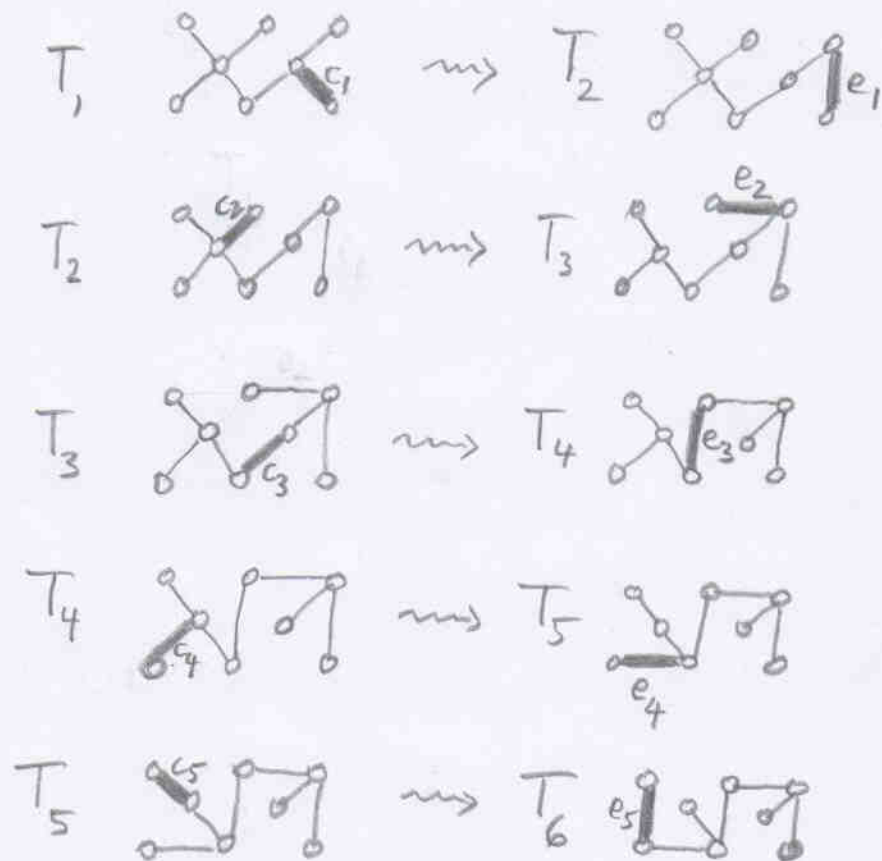 T1 c1 T2 e1
T2 c2 T3 e2
T3 c3 T4 e3
T4 c4 T5 e4
T5 c5 T6 e5